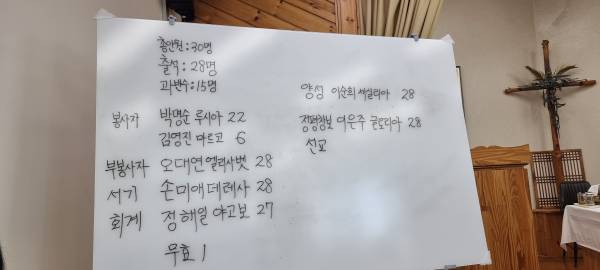 총인원 : 30명
출석 : 28명
과반수 : 15명
봉사자 박명순 루시아 22
김영진 마르코 6
부봉사자 오대연 엘리사벳 28
서기 손미애 데레사 28
회계 정해일 야고보 27
무효 1
양성 이순희 세실리아 28
정평창보 여은주 글로리아 28
선교